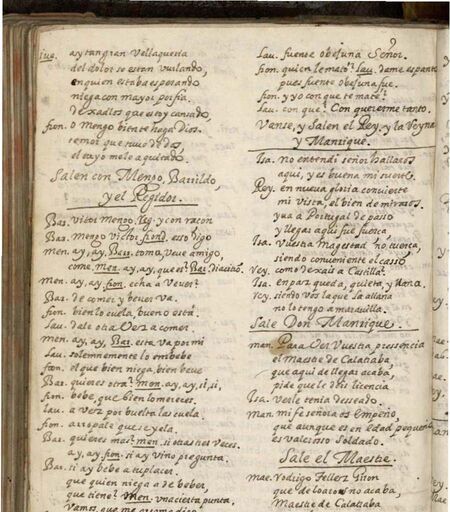 iue. ay tan gran Vellaqueria
del dolor se estan burlando,
en quien estaba esperando
niega con mayor porfia.
dexadlos que estoy cansado
fron. o Mengo bien te haga dios.
temor que tuve de dos,
el tuyo me le a quitado.
Salen con Mengo, Barrildo,
y el Regidor.
Bar. vitor mengo, Reg. y con razon
Bar. mengo victor, frond. esso digo
men. ay, ay, Bar. toma, veve amigo,
come, men. ay, ay, que es? Bar. diacitrō
men. ay, ay, fron. echa a vever?
Bar. de comer y bever va.
fron. bien lo cuela, bueno está.
Lau. dale otra vez a comer.
men. ay, ay, Bar. esta va por mi
Lau. solemnemente lo embebe
fron. el que bien niega, bien beve
Bar. quieres otra? men. ay, ay, si, si,
fron. bebe, que bien lo mereces.
Lau. a vez por buelta las cuela.
fron. arropale que se yela.
Bar. quieres mas? men. si otras tres veces.
ay, ay, fron. si ay vino pregunta.
Bar. si ay bebe a tu placer.
que quien niega a de beber,
que tiene? men. una cierta punta.
Vamos, que me
Lau. fuente obejuna Señor.
fron. quien le mató? Lau. dame espanto
pues fuente obejuna fue.
fron. y yo con que te mate?
Lau. con que? Con quererme tanto.
Vanse, y Salen el Rey, y la Reyna
y Manrique.
Isa. no entendi señor hallaros
aqui, y es buena mi suerte.
Rey. en nueva gloria convierte
mi vista, el bien de miraros.
yva a Portugal de passo
y llegar aqui fue fuerca
Isa. Vuestra magestad no tuerca,
siendo conveniente el casso,
Rey. como dexais a Castilla?
Isa. en paz queda, quieta, y llana.
Rey. siendo vos la que la allana
no lo tengo a maravilla.
Sale Don Manrique.
man. Para Ver Vuestra pressencia
el Maestre de Calatraba
que aqui de llegar acaba,
pide que le deis licencia
Isa. verle tenia desseado.
man. mi fe señora es Empeño,
que aunque es en Edad pequeño
es valeroso Soldado.
Sale el Maestre.
mae. Rodrigo Tellez Giron
que de loaros no acaba,
Maestre de Calatraba